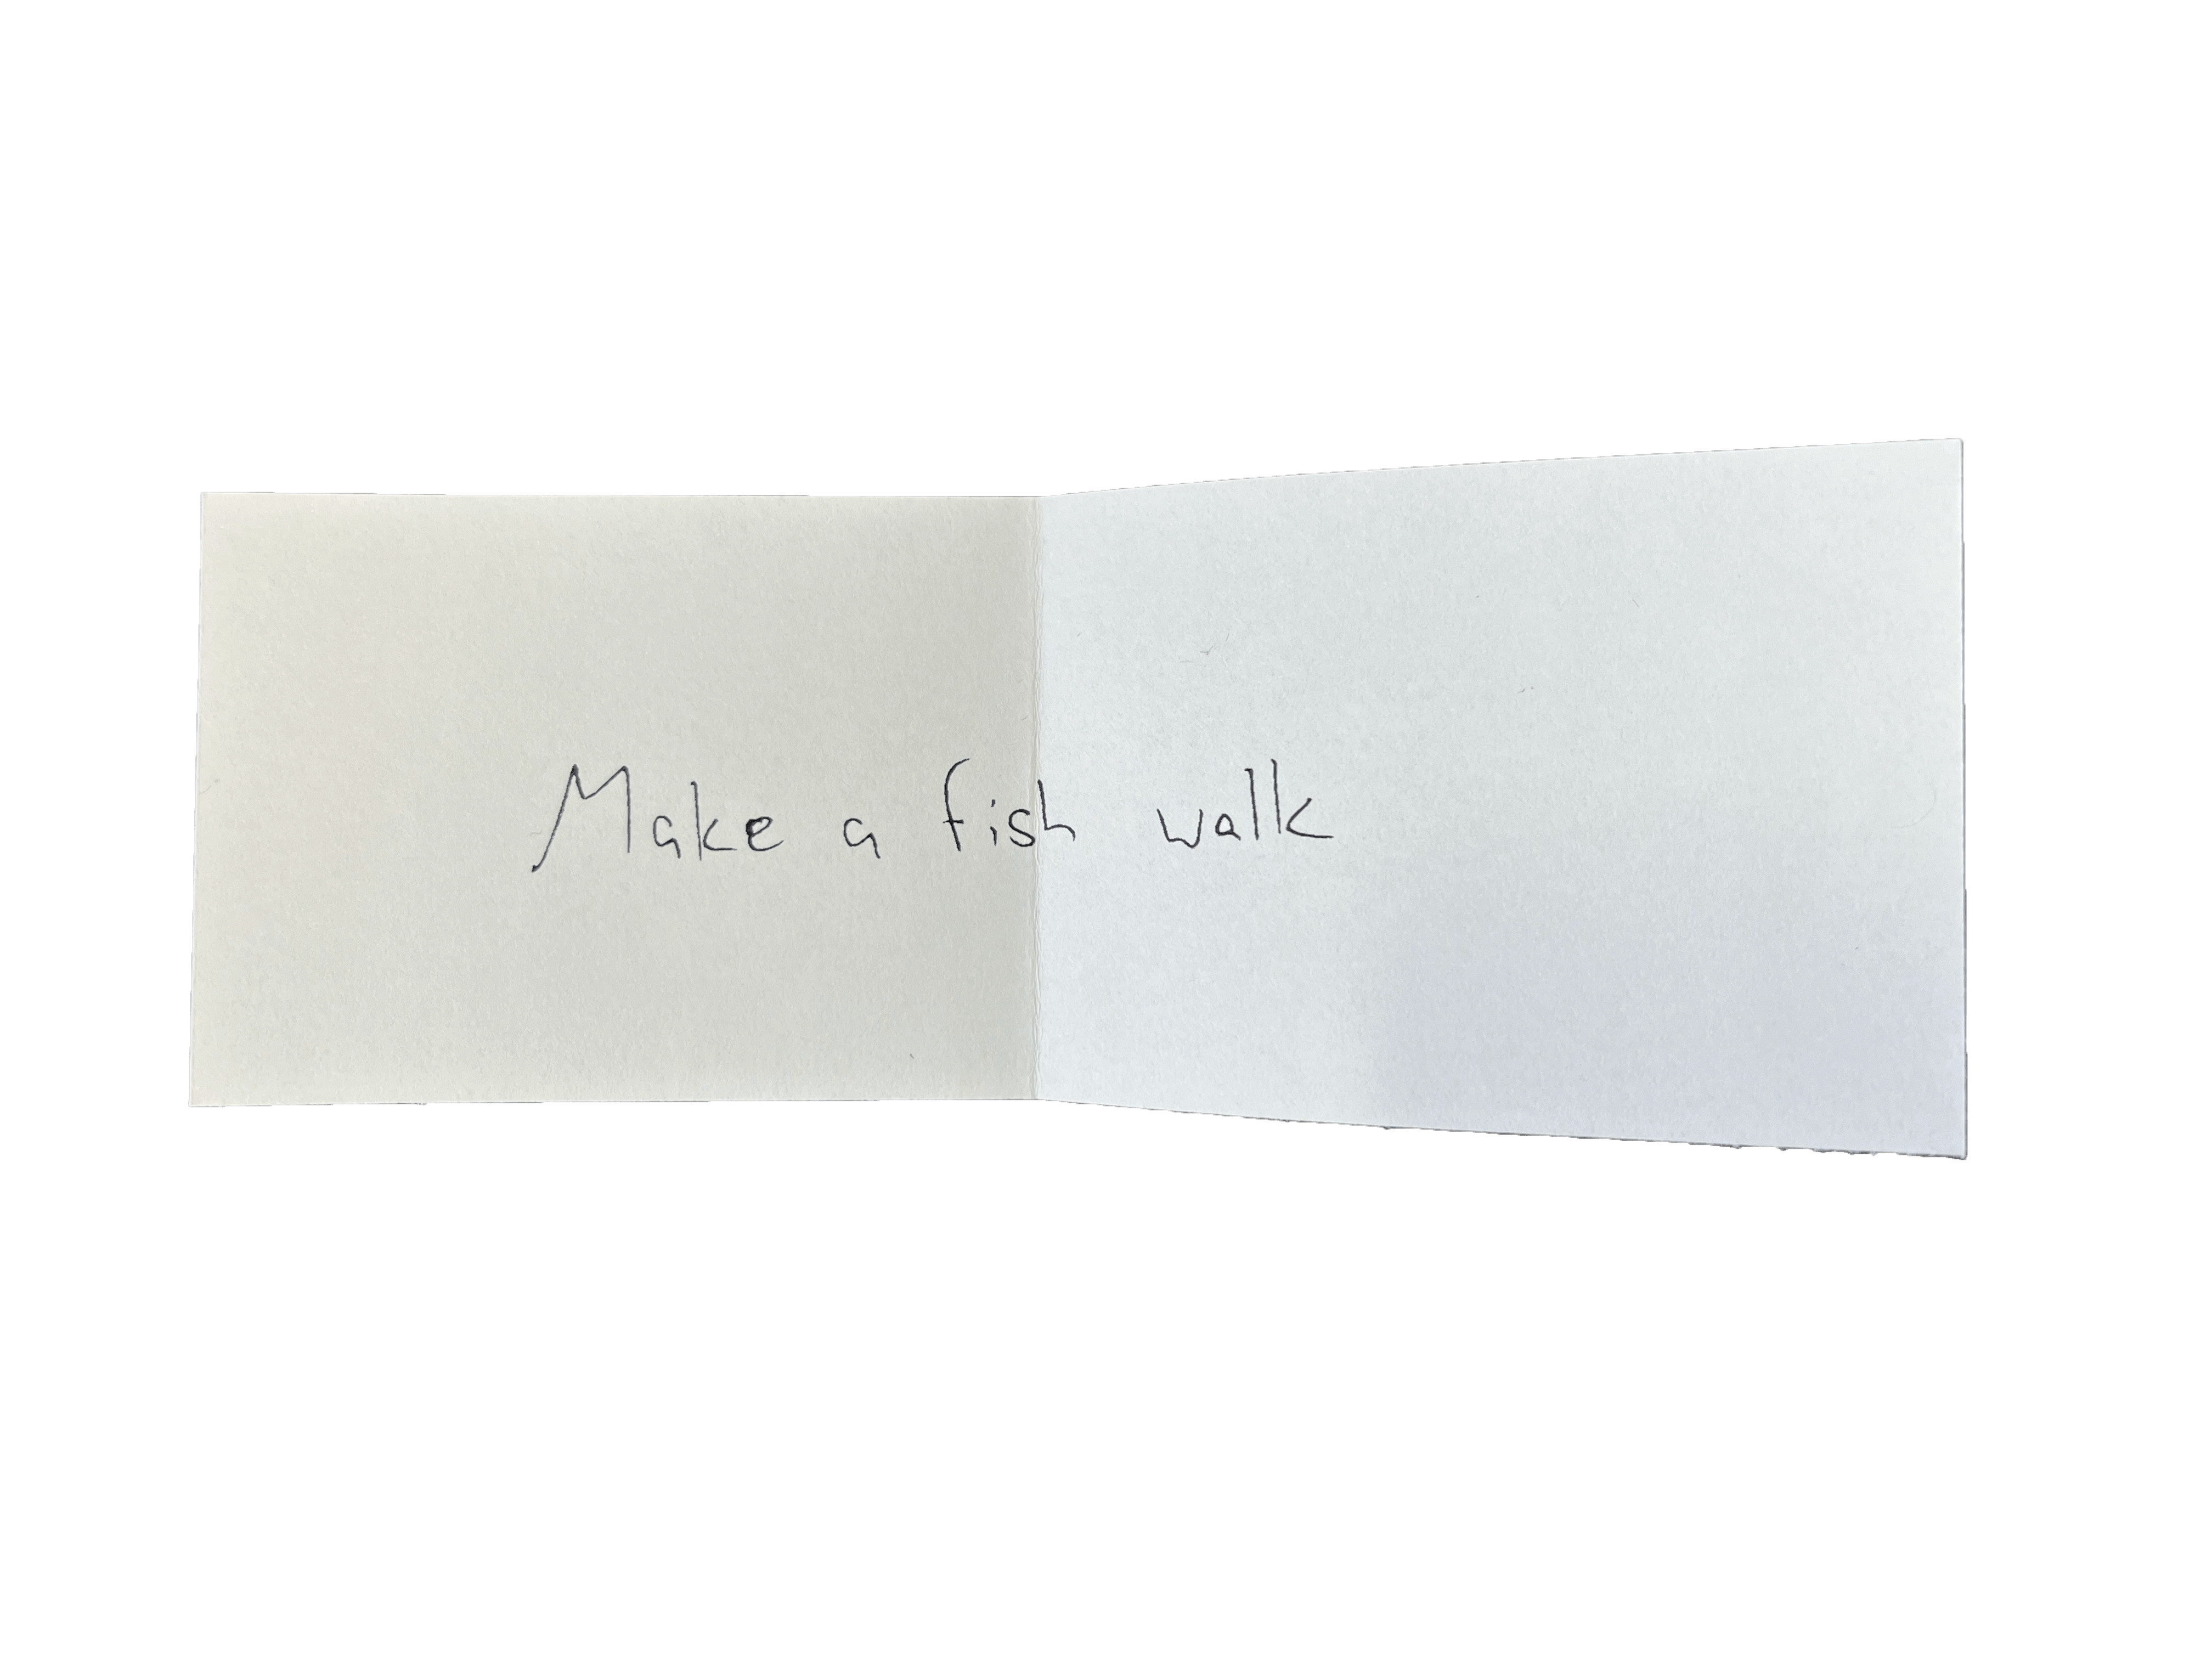 Make a fish walk